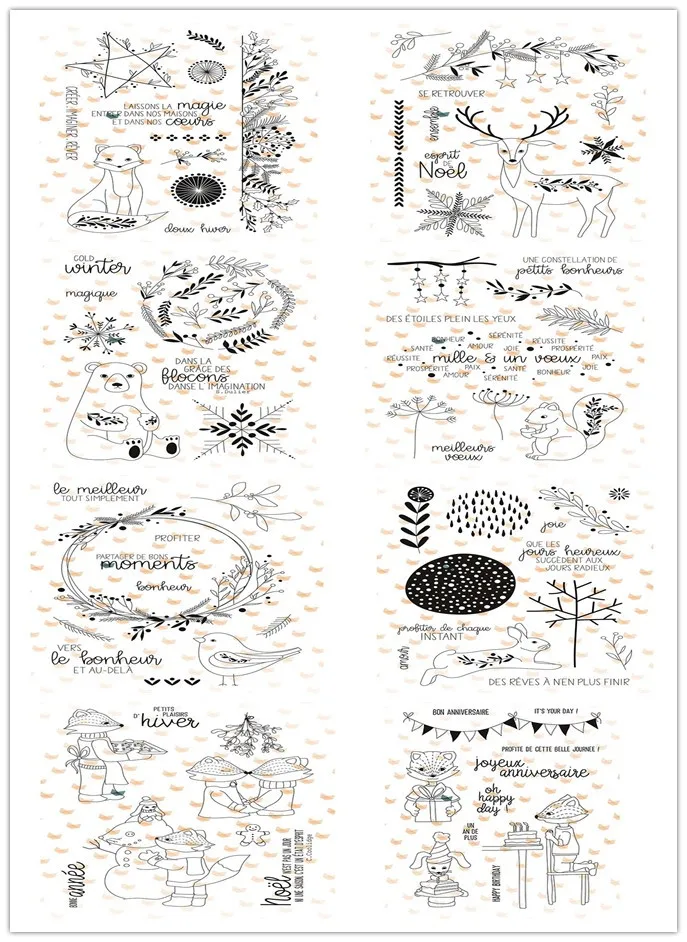 CRÉER IMAGINER RÊVER
LAISSONS LA magie
ENTRER DANS NOS MAISONS
ET DANS NOS cœurs
doux hiver
SE RETROUVER
ensemble
esprit
DE
Noël
COLD
winter
magique
DANS LA
GRÂCE DES
flocons
DANSE L'IMAGINATION
UNE CONSTELLATION DE
petits bonheurs
DES ÉTOILES PLEIN LES YEUX
BONHEUR SÉRÉNITÉ
SANTÉ AMOUR JOIE RÉUSSITE PROSPÉRITÉ
RÉUSSITE mille & un vœux PAIX
PROSPÉRITÉ PAIX SANTÉ BONHEUR JOIE
AMOUR SÉRÉNITÉ
meilleurs
vœux
le meilleur
TOUT SIMPLEMENT
PROFITER
PARTAGER DE BONS
moments
bonheur
VERS
le bonheur
ET AU-DELÀ
joie
QUE LES
jours heureux
SUCCÈDENT AUX
JOURS RADIEUX
profiter de chaque
INSTANT
amour
DES RÊVES À N'EN PLUS FINIR
PETITS
PLAISIRS
D'hiver
BONNE année
Noël N'EST PAS UN JOUR
NI UNE SAISON, C'EST UN ÉTAT D'ESPRIT
BON ANNIVERSAIRE
IT'S YOUR DAY !
PROFITE DE CETTE BELLE JOURNÉE !
joyeux
anniversaire
oh
happy
day !
UN
AN DE
PLUS
HAPPY BIRTHDAY